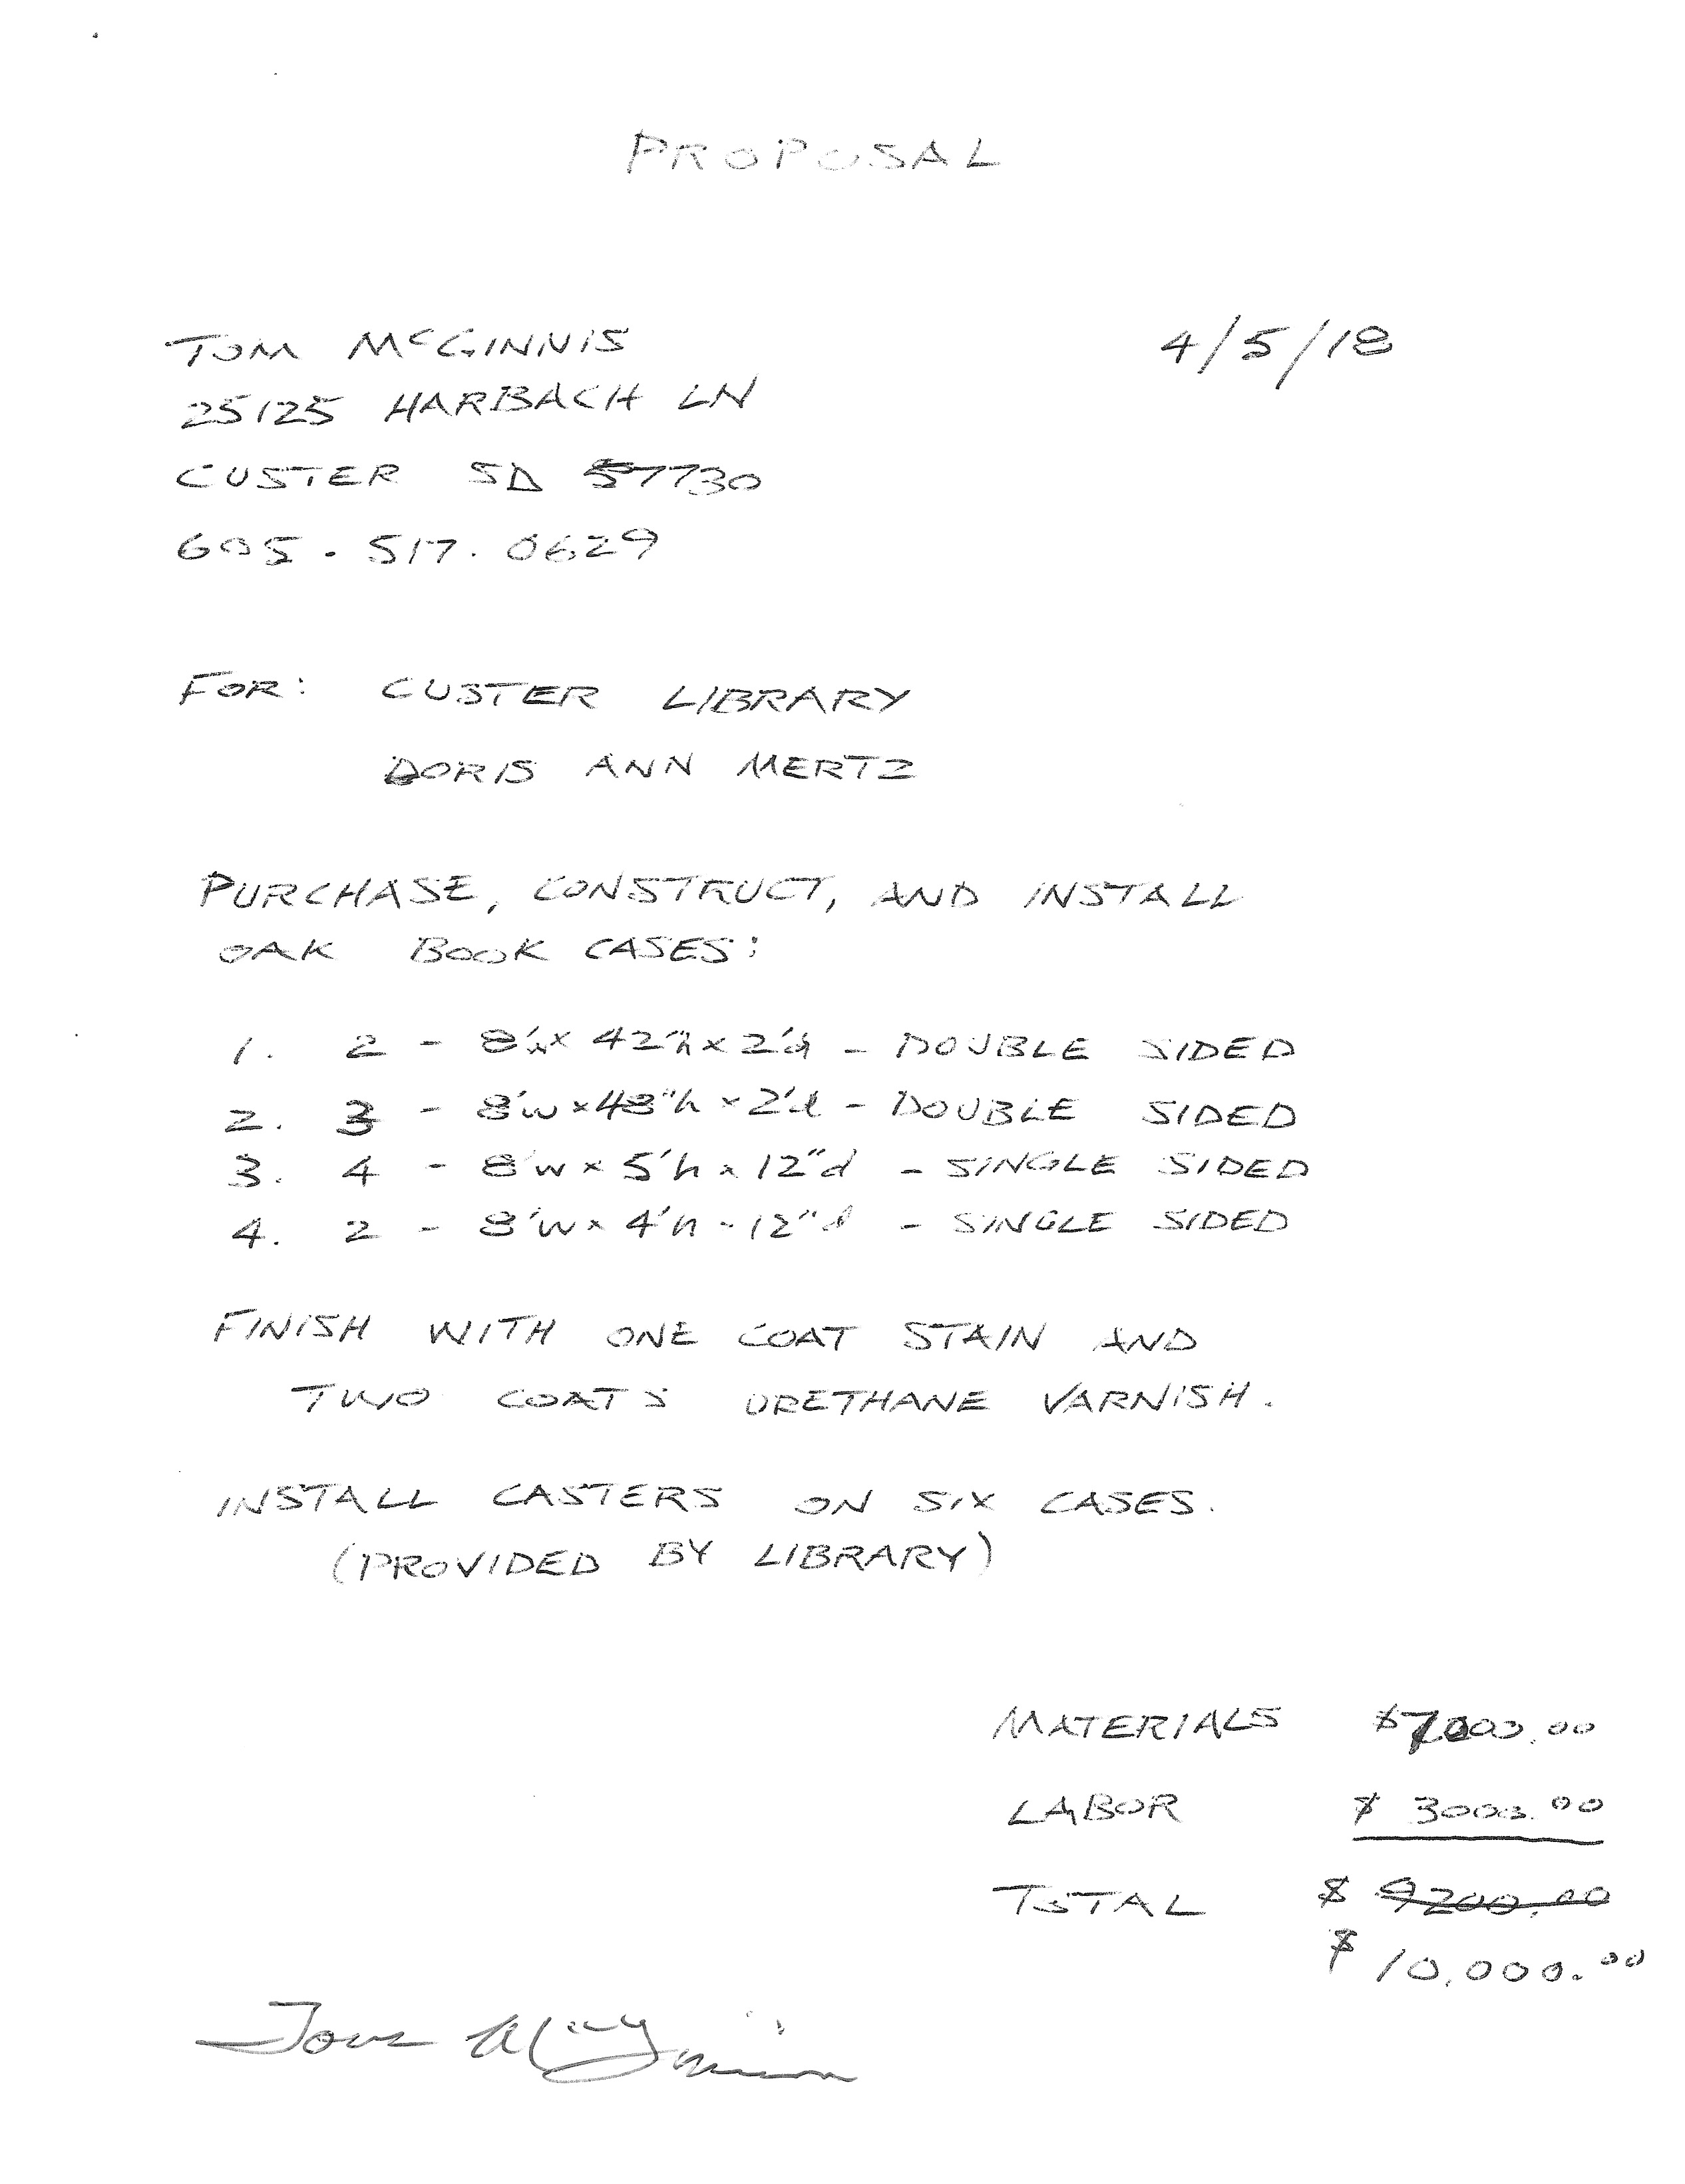 PROPOSAL
TOM McGINNIS 4/5/18
25125 HARBACH LN
CUSTER SD 57730
605.517.0629
FOR: CUSTER LIBRARY
DORIS ANN MERTZ
PURCHASE, CONSTRUCT, AND INSTALL
OAK BOOK CASES:
1. 2 - 8'w x 42"h x 2'd - DOUBLE SIDED
2. 3 - 8'w x 48"h x 2'd - DOUBLE SIDED
3. 4 - 8'w x 5'h x 12"d - SINGLE SIDED
4. 2 - 8'w x 4'h - 12"d - SINGLE SIDED
FINISH WITH ONE COAT STAIN AND
TWO COATS URETHANE VARNISH.
INSTALL CASTERS ON SIX CASES.
(PROVIDED BY LIBRARY)
MATERIALS $7000.00
LABOR $ 3000.00
TOTAL $ 9200.00
$ 10,000.00
Tom McGinnis